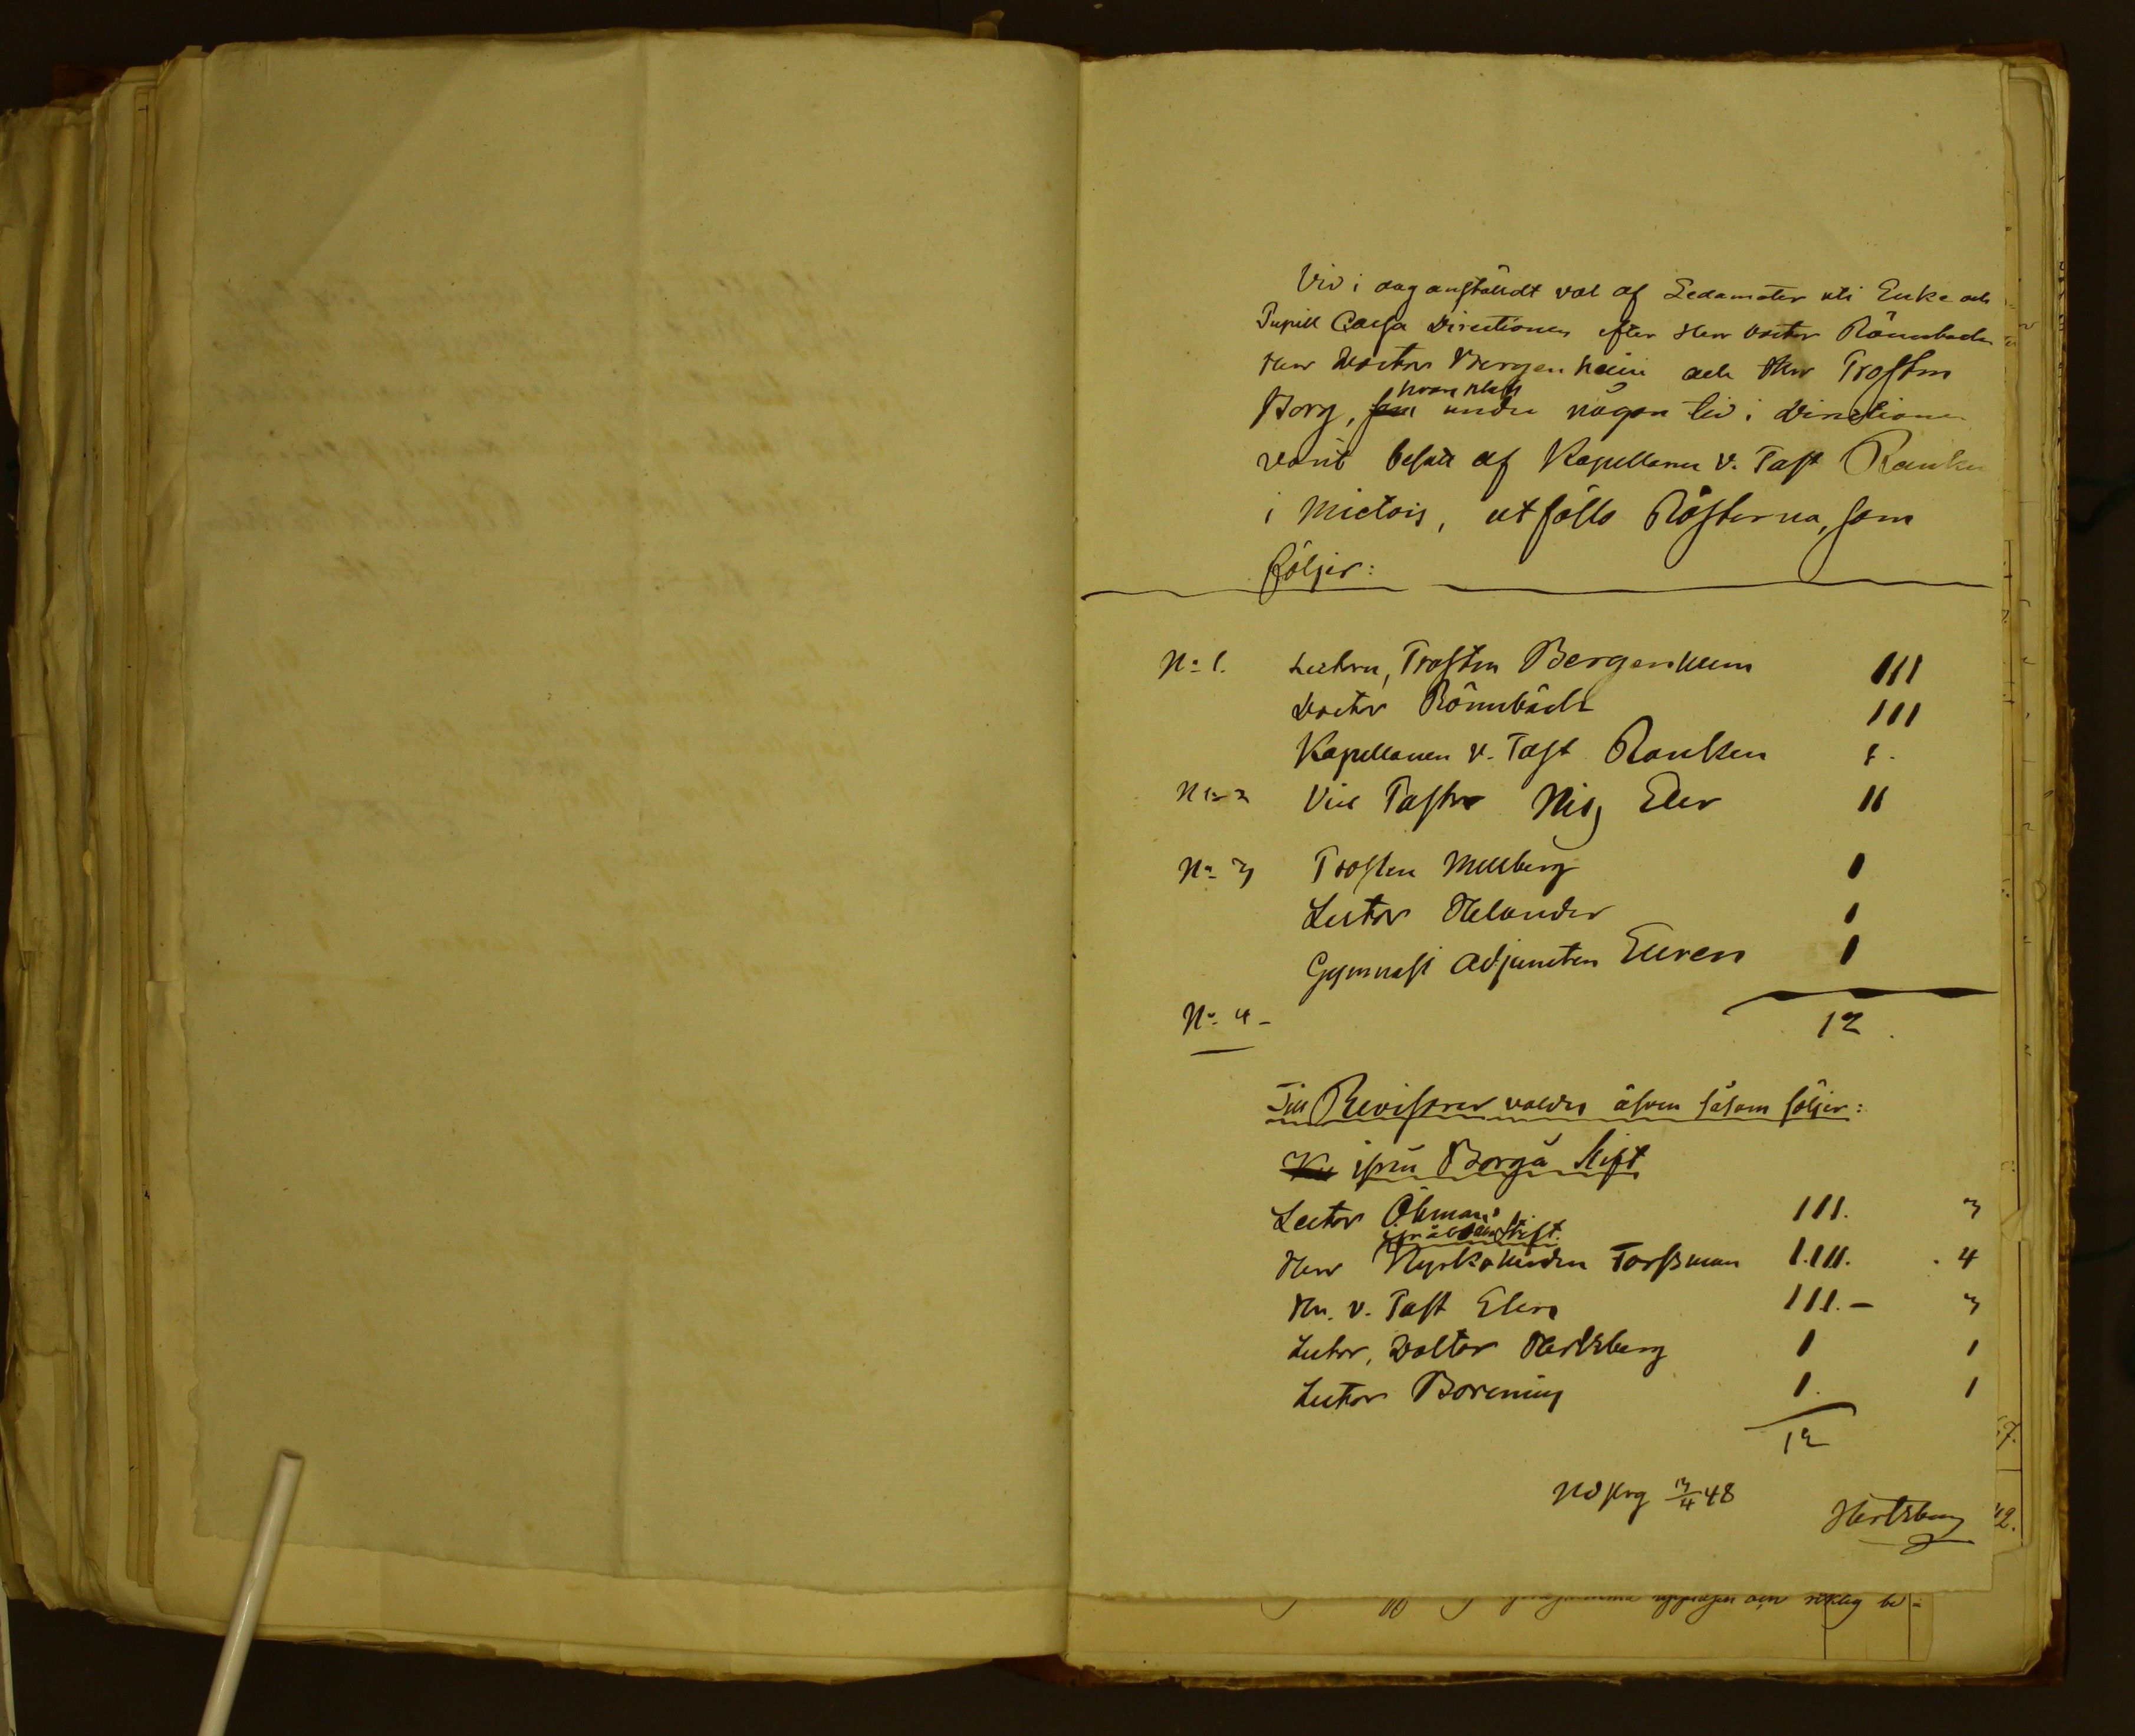 Vid i dag anstäldt val af Ledamöter uti Enke och
Pupill Cassa Directionen efter Herr Doctor Rönnbäck
Herr Doctor Bergenheim och Herr Prosten
Borg, hvars plats
under någon tid i Directionen
varit besatt af Kapellanen v. Past Ranken
i Mietois, utföllo Rösterna, som
följer:
No 1. Lectorn, Prosten Bergenheim III
Doctor Rönnbäck III
Kapellanen v. Past Ranken
No 2 Vice Pastor Elers II
No 3 Prosten Mellberg I
Lector Helander I
Gymnasi Adjuncten Euren I
No 4 - 12.
Till Revisorer valdes äfven såsom följer:
ifrån Borgå Stift
Lector Öhman III. 3
ifrån Åbo Stift.
Herr Kyrkoherden Forssman I.III. 4
Hr. v. Past Elers III. - 3
Lector, Doctor Hertzberg I 1
Lector Borenius I. 1
12
13/4 48
Hertzberg
12.